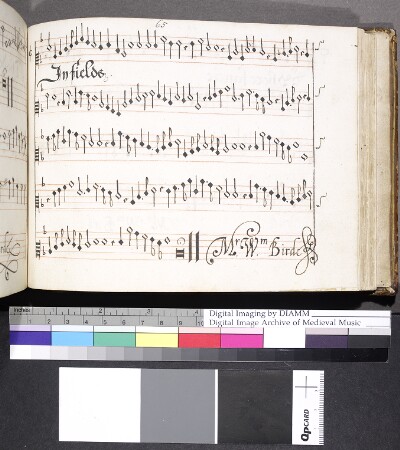 65
In fields
Mr. Wm Birde
inches 1 2 3 4
Digital Imaging by DIAMM
Digital Image Archive of Medieval Music
QPCARD